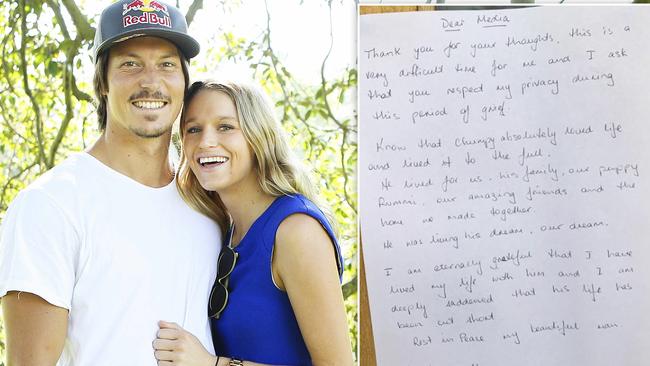 Red Bull
Dear Media
Thank you for your thoughts, this is a
very difficult time for me and I ask
that you respect my privacy during
this period of grief.
Know that Chumpy absolutely loved life
and lived it to the full.
He lived for us, his family, our puppy
Rummi, our amazing friends and the
home we made together.
He was living his dream, our dream.
I am eternally grateful that I have
lived my life with him and I am
deeply saddened that his life has
been cut short
Rest in Peace my beautiful man